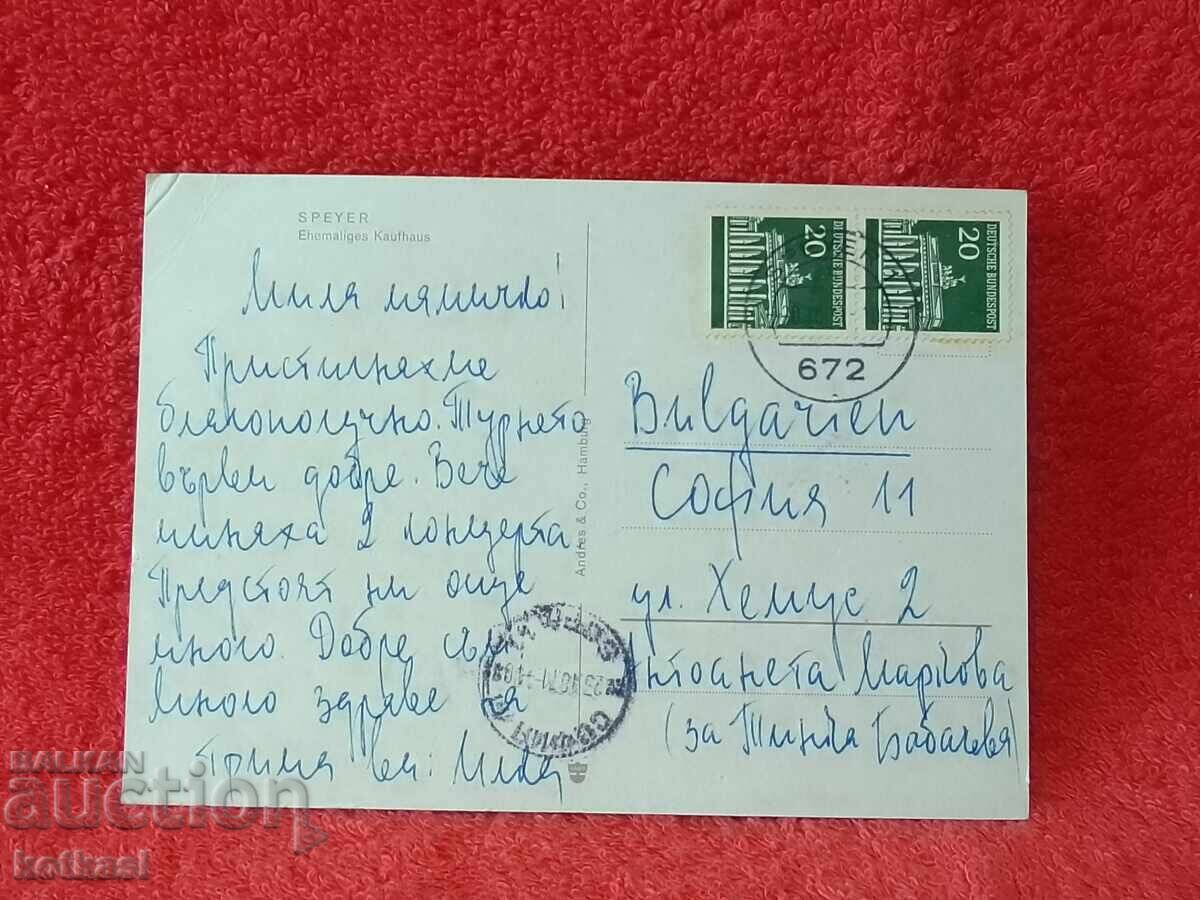 SPEYER
Ehemaliges Kaufhaus
Мила мамичко!
Пристигнахме
благополучно. Турнето
върви добре. Вече
минаха 2 концерта
Предстоят ни още
много. Добре съм
Много здраве на
ви:
Andres & Co., Hamburg
20
DEUTSCHE BUNDESPOST
20
DEUTSCHE BUNDESPOST
672
Bulgarien
София 11
ул. Хемус 2
Антоанета Маркова
(за Бабачева)
СОФИЯ
BALKAN
auction
kotkasl